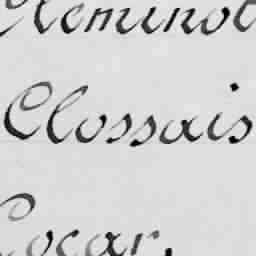 Cleminot
Clossais
Cocar.